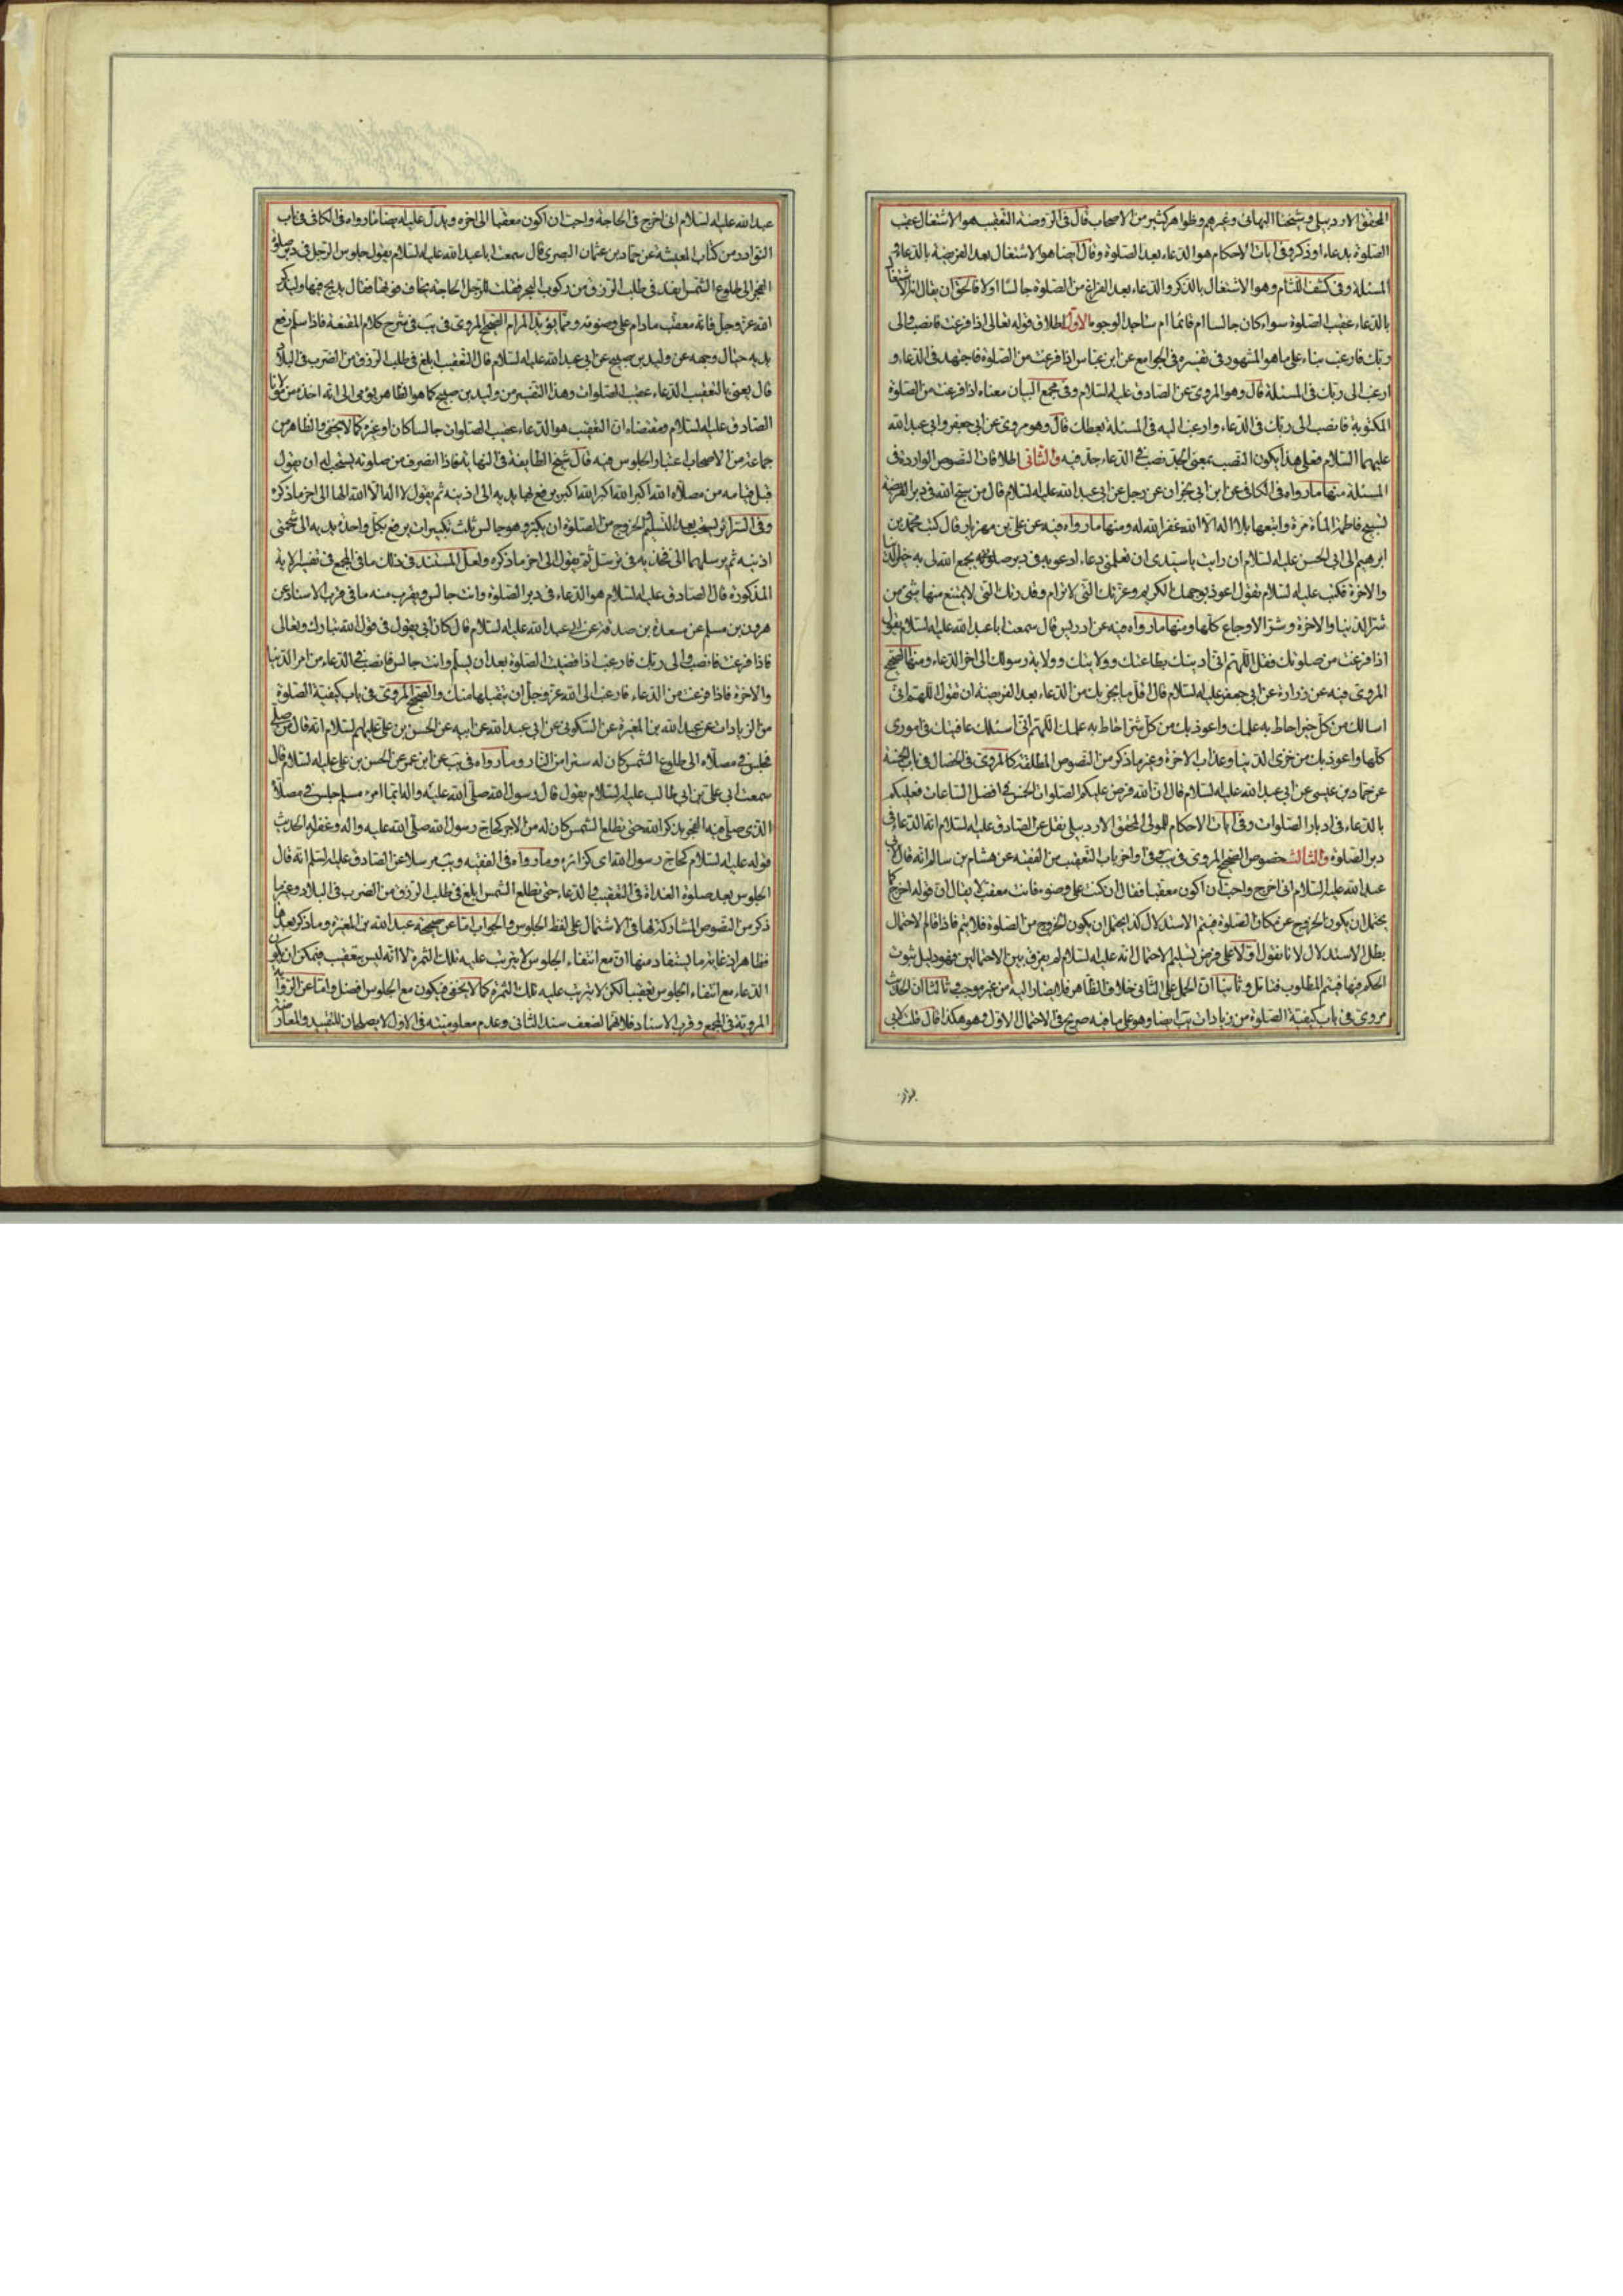 المحقق الاردبيلي وشيخنا البهائي وغيرهم وظواهر كثير من الاصحاب قال في الروضة التعقيب هو الاشتغال عقيب
الصلوة بدعاء او ذكر وفي ايات الاحكام هو الدعاء بعد الصلوة وقال ايضا هو الاشتغال بعد الفريضة بالدعاء و
المسئلة وفي كشف اللثام وهو الاشتغال بالذكر والدعاء بعد الفراغ من الصلوة جالسا اولا فالحق ان يقال انه الاشتغال
بالدعاء عقيب الصلوة سواء كان جالسا ام قائما ام ساجدا لوجوه الاول اطلاق قوله تعالى اذا فرغت فانصب والى
ربك فارغب بناء على ما هو المشهور في تفسيره في الجوامع عن ابن عباس اذا فرغت من الصلوة فاجتهد في الدعاء و
ارغب الى ربك في المسئلة قال وهو المروي عن الصادق عليه السلام وفي مجمع البيان معناه اذا فرغت من الصلوة
المكتوبة فانصب الى ربك في الدعاء وارغب اليه في المسئلة يعطك قال وهو مروي عن ابي جعفر وابي عبد الله
عليهما السلام فعلى هذا يكون النصب بمعنى الجد نصب في الدعاء جد فيه والثاني اطلاقات النصوص الواردة في
المسئلة منها ما رواه في الكافي عن ابن ابي نجران عن رجل عن ابي عبد الله عليه السلام قال من سبح الله في دبر الفريضة
تسبيح فاطمة المأة مرة واتبعها بلا اله الا الله غفر الله له ومنها ما رواه فيه عن علي بن مهزيار قال كتب محمد بن
ابرهيم الى ابي الحسن عليه السلام ان رايت يا سيدي ان تعلمني دعاء ادعو به في دبر صلوتي يجمع الله لي به خير الدنيا
والاخرة فكتب عليه السلام تقول اعوذ بوجهك الكريم وعزتك التي لا ترام وقدرتك التي لا يمتنع منها شئ من
شر الدنيا والاخرة وشر الاوجاع كلها ومنها ما رواه فيه عن ادريس قال سمعت ابا عبد الله عليه السلام يقول
اذا فرغت من صلوتك فقل اللهم اني ادينك بطاعتك وولايتك وولاية رسولك الى اخر الدعاء ومنها الصحيح
المروي فيه عن زرارة عن ابي جعفر عليه السلام قال اقل ما يجزيك من الدعاء بعد الفريضة ان تقول اللهم اني
اسالك من كل خير احاط به علمك واعوذ بك من كل شر احاط به علمك اللهم اني اسئلك عافيتك في اموري
كلها واعوذ بك من خزي الدنيا وعذاب الاخرة وغير ما ذكر من النصوص المطلقة كالمروي في الخصال في باب الخمسة
عن حماد بن عيسى عن ابي عبد الله عليه السلام قال ان الله فرض عليكم الصلوات الخمس في افضل الساعات فعليكم
بالدعاء في ادبار الصلوات وفي ايات الاحكام للمولى المحقق الاردبيلي نقل عن الصادق عليه السلام انه الدعاء في
دبر الصلوة والثالث خصوص الصحيح المروي في اواخر باب التعقيب من الفقيه عن هشام بن سالم انه قال لابي
عبد الله عليه السلام اني اخرج واحب ان اكون معقبا فقال ان كنت على وضوء فانت معقب لا يقال ان قوله اخرج كما
يحتمل ان يكون الخروج عن مكان الصلوة فيتم الاستدلال كذا يحتمل ان يكون الخروج من الصلوة فلا يتم فاذا قام الاحتمال
بطل الاستدلال لانا نقول اولا على فرض تسليم الاحتمال انه عليه السلام لم يفرق بين الاحتمالين فهو دليل ثبوت
الحكم فيهما فيتم المطلوب فتامل وثانيا ان الحمل على الثاني خلاف الظاهر فلا يصار اليه من غير موجب وثالثا ان الحديث
مروي في باب كيفية الصلوة من زيادات يب ايضا وهو على ما فيه صريح في الاحتمال الاول وهو هكذا قال قلت لابي
عبد الله عليه السلام اني اخرج في الحاجة واحب ان اكون معقبا الى اخره ويدل عليه ايضا ما رواه في الكافي في باب
النوادر من كتاب المعيشة عن حماد بن عثمان البصري قال سمعت ابا عبد الله عليه السلام يقول جلوس الرجل في دبر صلوة
الفجر الى طلوع الشمس انفذ في طلب الرزق من ركوب البحر فقلت للرجل الحاجة يخاف فوتها فقال يدلج فيها وليذكر
الله عز وجل فانه معقب ما دام على وضوئه ومما يؤيد المرام الصحيح المروي في يب في شرح كلام المقنعة فاذا سلم رفع
يديه حيال وجهه عن وليد بن صبيح عن ابي عبد الله عليه السلام قال التعقيب ابلغ في طلب الرزق من الضرب في البلاد
قال يعني بالتعقيب الدعاء عقيب الصلوات وهذا التفسير من وليد بن صبيح كما هو الظاهر يؤمي الى انه اخذ من مولانا
الصادق عليه السلام فمقتضاه ان التعقيب هو الدعاء عقيب الصلوات جالسا كان او غيره كما لا يخفى والظاهر من
جماعة من الاصحاب اعتبار الجلوس فيه قال شيخ الطايفة في النهاية فاذا انصرف من صلوته يستحب له ان يقول
قبل قيامه من مصلاه الله اكبر الله اكبر الله اكبر يرفع بها يديه الى اذنيه ثم يقول لا اله الا الله الها الى اخر ما ذكره
وفي السرائر يستحب بعد التسليم والخروج من الصلوة ان يكبر وهو جالس ثلث تكبيرات يرفع بكل واحدة يديه الى شحمتي
اذنيه ثم يرسلهما الى فخذيه في ترسل ثم يقول الى اخر ما ذكره ولعل المستند في ذلك ما في المجمع في تفسير الاية
المذكورة قال الصادق عليه السلام هو الدعاء في دبر الصلوة وانت جالس ويقرب منه ما في قرب الاسناد عن
هرون بن مسلم عن مسعدة بن صدقة عن ابي عبد الله عليه السلام قال كان ابي يقول في قول الله تبارك وتعالى
فاذا فرغت فانصب والى ربك فارغب اذا قضيت الصلوة بعد ان تسلم وانت جالس فانصب في الدعاء من امر الدنيا
والاخرة فاذا فرغت من الدعاء فارغب الى الله عز وجل ان يتقبلها منك والصحيح المروي في باب كيفية الصلوة
من الزيادات عن عبد الله بن المغيرة عن السكوني عن ابي عبد الله عن ابيه عن الحسن بن علي عليهم السلام انه قال من صلى
فجلس في مصلاه الى طلوع الشمس كان له سترا من النار وما رواه في يب عن ابن عمر عن الحسن بن علي عليه السلام قال
سمعت ابي علي بن ابي طالب عليه السلام يقول قال رسول الله صلى الله عليه واله ايما امرء مسلم جلس في مصلاه
الذي صلى فيه الفجر يذكر الله حتى تطلع الشمس كان له من الاجر كحاج رسول الله صلى الله عليه واله وغفر له الحديث
قوله عليه السلام كحاج رسول الله اي كزائره وما رواه في الفقيه ويب مرسلا عن الصادق عليه السلام انه قال
الجلوس بعد صلوة الغداة في التعقيب والدعاء حتى تطلع الشمس ابلغ في طلب الرزق من الضرب في البلاد وغير ما
ذكر من النصوص المشاركة لها في الاشتمال على لفظ الجلوس والجواب اما عن صحيحة عبد الله بن المغيرة وما ذكر بعدها
فظاهر اذ غاية ما يستفاد منها ان مع انتفاء الجلوس لا يترتب عليه تلك الثمرة لا انه ليس بتعقيب فيمكن ان يكون
الدعاء مع انتفاء الجلوس تعقيبا لكن لا يترتب عليه تلك الثمرة كما لا يخفى فيكون مع الجلوس افضل واما عن الرواية
المروية في المجمع وقرب الاسناد فلانهما لضعف سند الثاني وعدم معلوميته في الاول لا يصلحان للتقييد والمعارضة